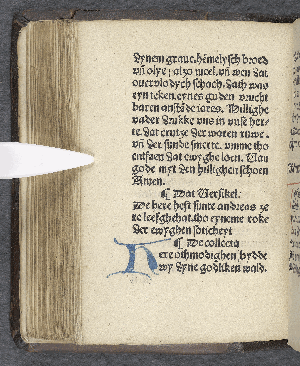 dynem graue. hemelysch broed
vn olye / alzo woel. vn wen dat
ouerulodych schach. dath was
eyn teken. eynes guden vrucht
baren iares. Myllighe
vader drukke vns in vnse her-
te. dat cruze der waren ruwe.
vn der sunde smerte. vmme tho
entfaen dat ewyghe loen. Van
gode myt den hillighen schoen
Amen.
¶ Dat Versikel.
De here heft sunte andreas ze
re leefghehat. tho eyneme roke
der ewyghen soticheyt
¶ De collecta
Here othmodighen bydde
wy dyne godliken wald.